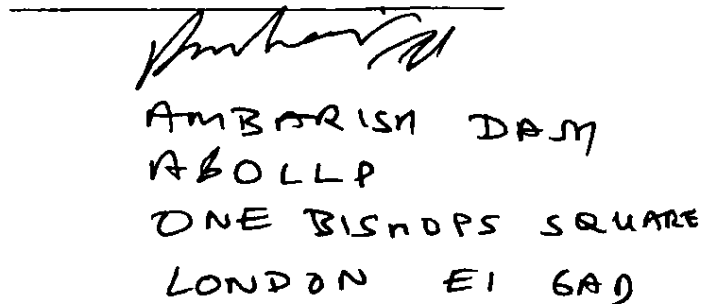 AMBARISH DASH
A&OLLP
ONE BISHOPS SQUARE
LONDON E1 6AD